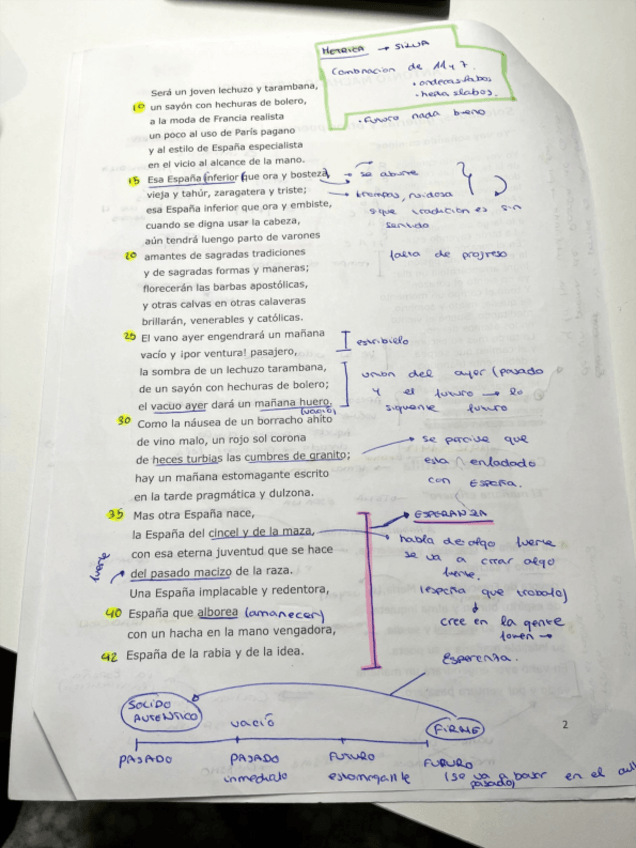 METRICA → SILVA
Combinacion de 11 y 7.
• endecasilabos
• heptasilabos.
• Futuro nada bueno
Será un joven lechuzo y tarambana,
10 un sayón con hechuras de bolero,
a la moda de Francia realista
un poco al uso de París pagano
y al estilo de España especialista
en el vicio al alcance de la mano.
15 Esa España inferior que ora y bosteza, → se aburre
vieja y tahúr, zaragatera y triste; → trampas, ruidosa
esa España inferior que ora y embiste, sique tradición es sin
cuando se digna usar la cabeza, sentido
aún tendrá luengo parto de varones
20 amantes de sagradas tradiciones falta de progreso
y de sagradas formas y maneras;
florecerán las barbas apostólicas,
y otras calvas en otras calaveras
brillarán, venerables y católicas.
25 El vano ayer engendrará un mañana estribillo
vacío y ¡por ventura! pasajero,
la sombra de un lechuzo tarambana, union del ayer (pasado
de un sayón con hechuras de bolero; y el futuro → lo
el vacuo ayer dará un mañana huero. siguiente futuro
(vacio)
30 Como la náusea de un borracho ahíto
de vino malo, un rojo sol corona → se percive que
de heces turbias las cumbres de granito; esta enfadado
hay un mañana estomagante escrito con España.
en la tarde pragmática y dulzona.
35 Mas otra España nace, → ESPERANZA
la España del cincel y de la maza, habla de algo fuerte
con esa eterna juventud que se hace se va a crear algo
fuerte del pasado macizo de la raza. fuerte.
Una España implacable y redentora, (españa que trabaja)
40 España que alborea (amanecer) cree en la gente
con un hacha en la mano vengadora, joven →
42 España de la rabia y de la idea. Esperanza.
SOLIDO
AUTENTICO
vació
FIRME
2
PASADO PASADO FUTURO FUTURO
inmediato estomagante (se va a basar en el
pasado)